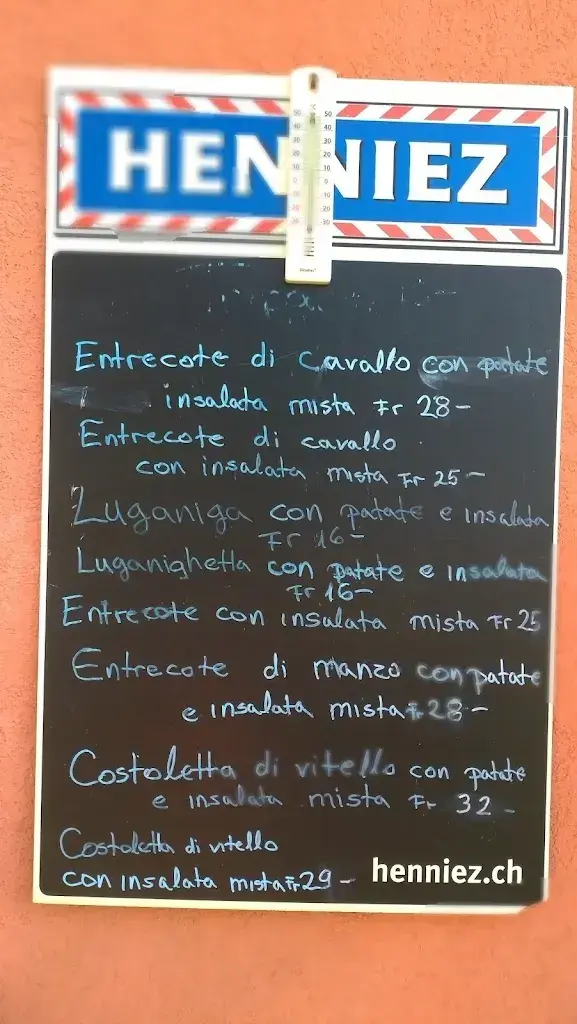 HENNIEZ
Entrecote di cavallo con patate
insalata mista Fr 28-
Entrecote di cavallo
con insalata mista Fr 25-
Luganiga con patate e insalata
Fr 16-
Luganighetta con patate e insalata
Fr 16-
Entrecote con insalata mista Fr 25
Entrecote di manzo con patate
e insalata mista Fr 28-
Costoletta di vitello con patate
e insalata mista Fr 32-
Costoletta di vitello
con insalata mista Fr 29-
henniez.ch